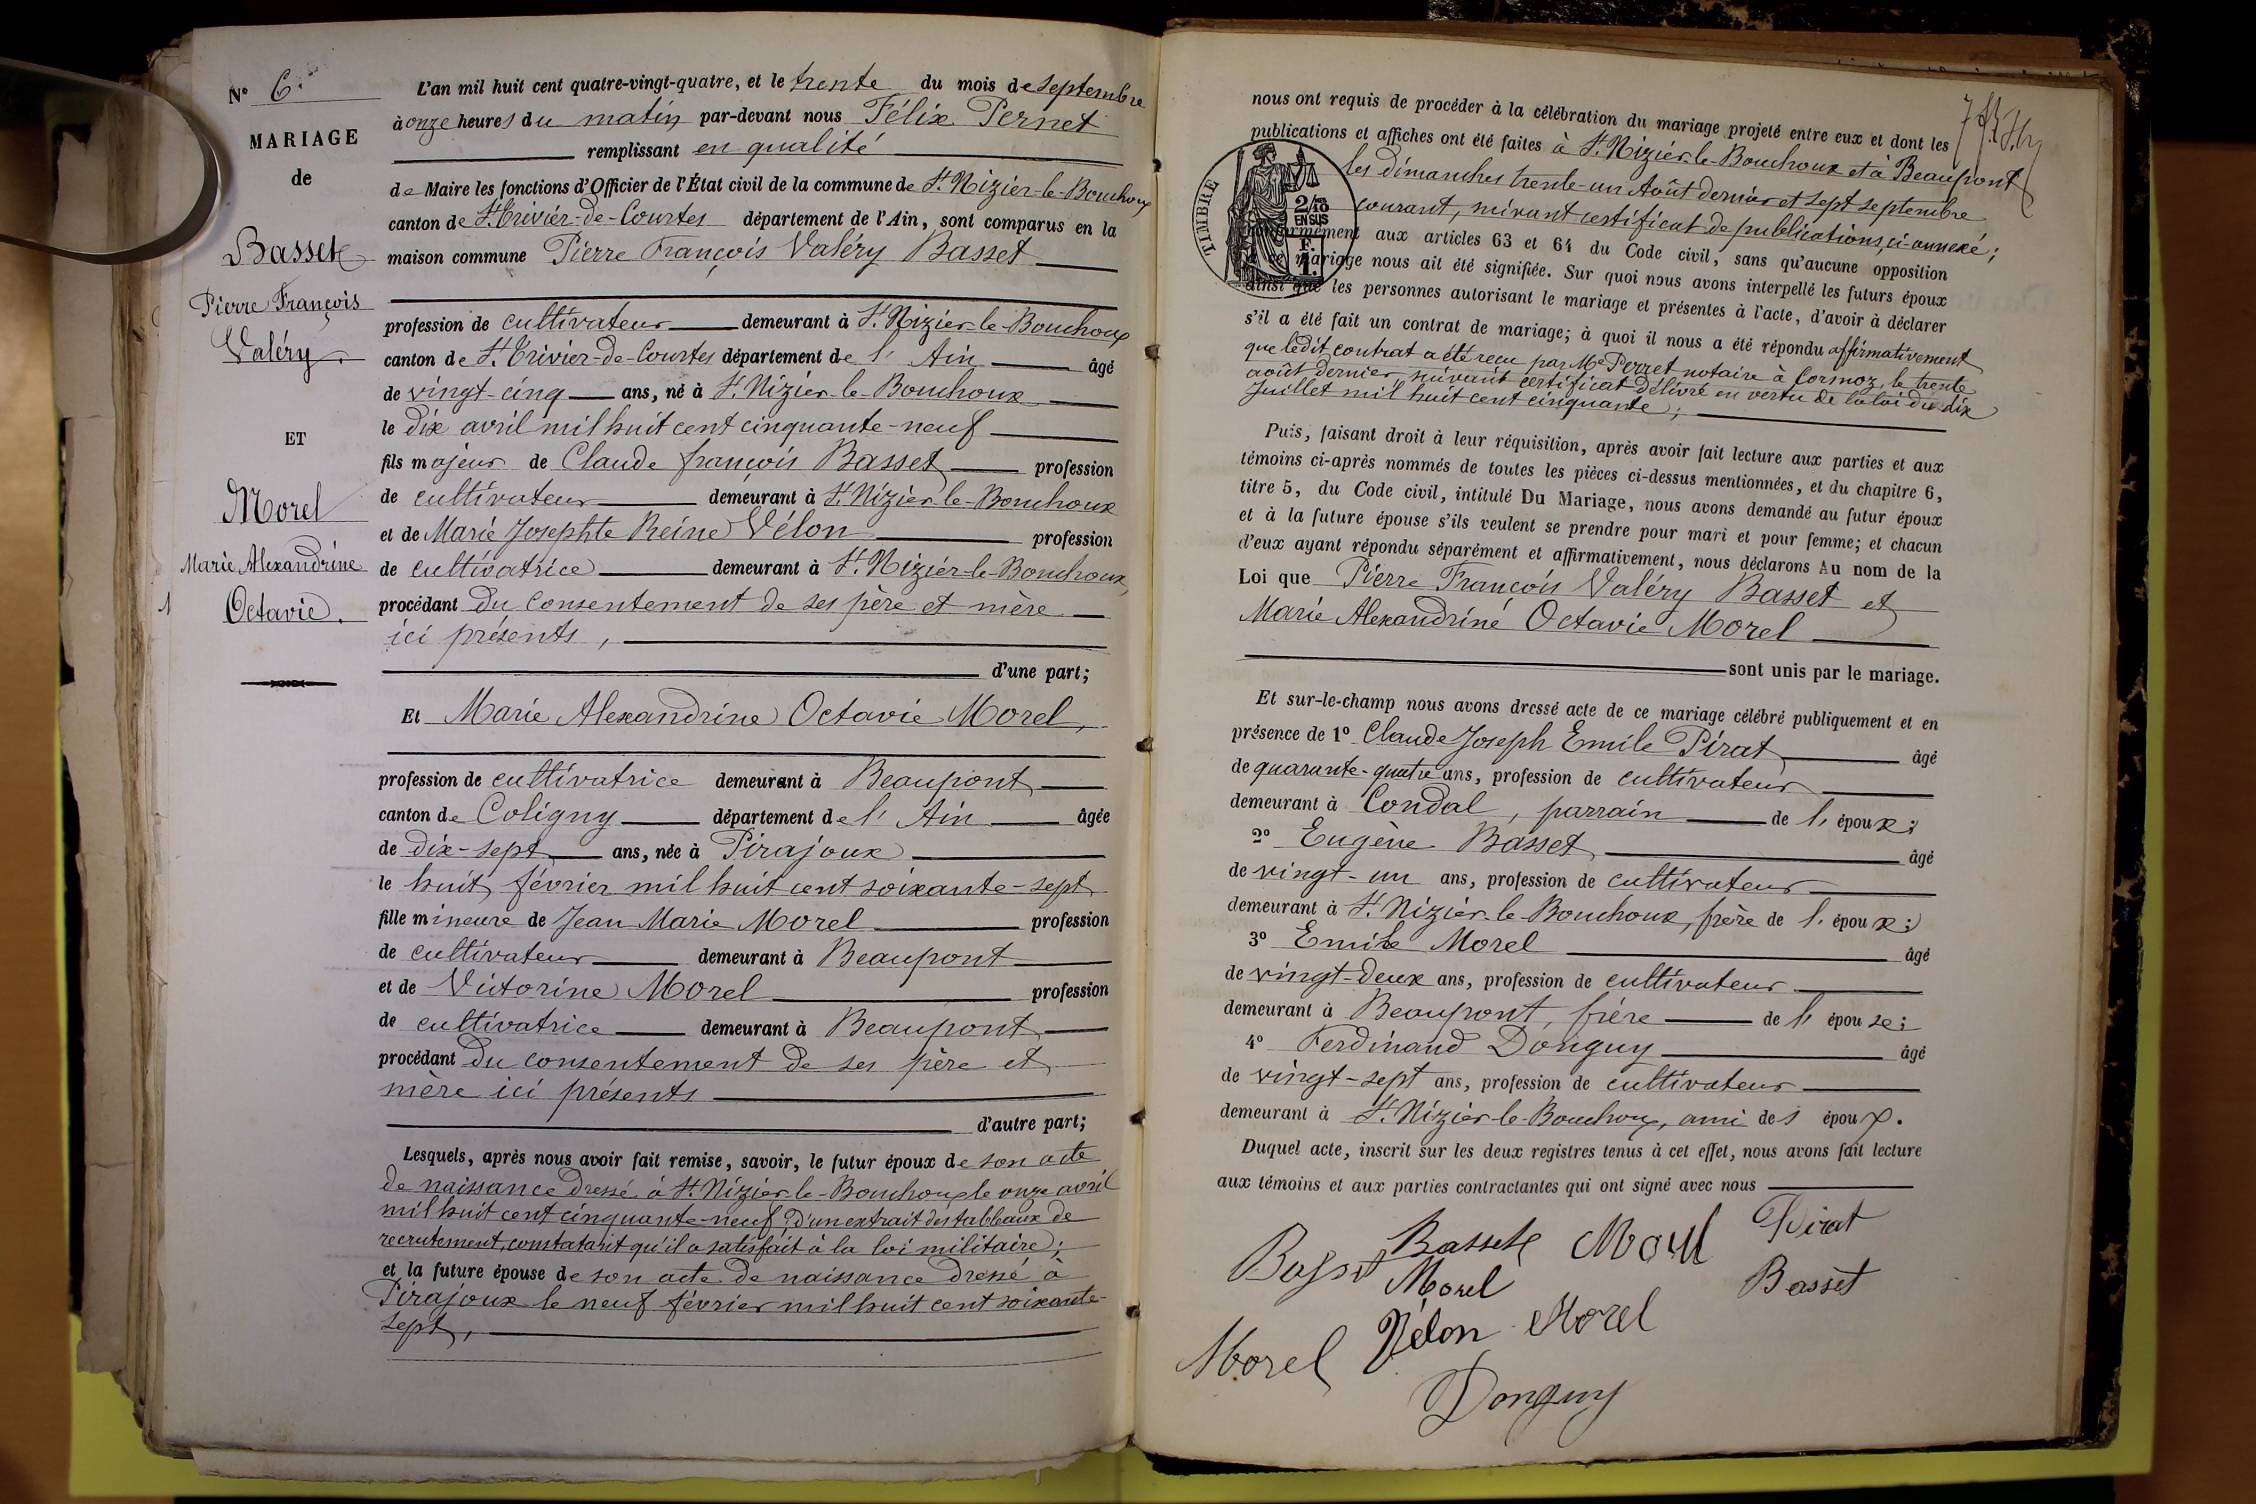 N° 6.
MARIAGE
de
Basset
Pierre François
Valéry.
ET
Morel
Marie Alexandrine
Octavie.
1
L'an mil huit cent quatre-vingt-quatre, et le trente du mois de septembre
à onze heures du matin par-devant nous Félix Pernet
remplissant en qualité
de Maire les fonctions d'Officier de l'État civil de la commune de St. Nizier-le-Bouchoux
canton de St. Trivier-de-Courtes département de l'Ain, sont comparus en la
maison commune Pierre François Valéry Basset
profession de cultivateur demeurant à St. Nizier-le-Bouchoux
canton de St. Trivier-de-Courtes département de l'Ain âgé
de vingt-cinq ans, né à St. Nizier-le-Bouchoux
le dix avril mil huit cent cinquante-neuf
fils majeur de Claude françois Basset profession
de cultivateur demeurant à St. Nizier-le-Bouchoux
et de Marie Josephte Reine Vélon profession
de cultivatrice demeurant à St. Nizier-le-Bouchoux,
procédant du consentement de ses père et mère
ici présents,
d'une part;
Et Marie Alexandrine Octavie Morel,
profession de cultivatrice demeurant à Beaupont
canton de Coligny département de l'Ain âgée
de dix-sept ans, née à Pirajoux
le huit février mil huit cent soixante-sept
fille mineure de Jean Marie Morel profession
de cultivateur demeurant à Beaupont
et de Victorine Morel profession
de cultivatrice demeurant à Beaupont
procédant du consentement de ses père et
mère ici présents
d'autre part;
Lesquels, après nous avoir fait remise, savoir, le futur époux de son acte
de naissance dressé à St. Nizier-le-Bouchoux le onze avril
mil huit cent cinquante-neuf, d'un extrait des tableaux de
recrutement, constatant qu'il a satisfait à la loi militaire;
et la future épouse de son acte de naissance dressé à
Pirajoux le neuf février mil huit cent soixante-
sept,
nous ont requis de procéder à la célébration du mariage projeté entre eux et dont les
publications et affiches ont été faites à St. Nizier-le-Bouchoux et à Beaupont
les dimanches trente-un Août dernier et sept septembre
courant, suivant certificat de publications, ci-annexé;
TIMBRE
2/10
EN SUS
F.
1.
conformément aux articles 63 et 64 du Code civil, sans qu'aucune opposition
mariage nous ait été signifiée. Sur quoi nous avons interpellé les futurs époux
ainsi que les personnes autorisant le mariage et présentes à l'acte, d'avoir à déclarer
s'il a été fait un contrat de mariage; à quoi il nous a été répondu affirmativement
que ledit contrat a été reçu par Me Perret notaire à Cormoz, le trente
août dernier, suivant certificat délivré en vertu de la loi du dix
Juillet mil huit cent cinquante;
Puis, faisant droit à leur réquisition, après avoir fait lecture aux parties et aux
témoins ci-après nommés de toutes les pièces ci-dessus mentionnées, et du chapitre 6,
titre 5, du Code civil, intitulé Du Mariage, nous avons demandé au futur époux
et à la future épouse s'ils veulent se prendre pour mari et pour femme; et chacun
d'eux ayant répondu séparément et affirmativement, nous déclarons Au nom de la
Loi que Pierre François Valéry Basset et
Marie Alexandrine Octavie Morel
sont unis par le mariage.
Et sur-le-champ nous avons dressé acte de ce mariage célébré publiquement et en
présence de 1° Claude Joseph Emile Pirat âgé
de quarante-quatre ans, profession de cultivateur
demeurant à Condal, parrain de l'époux;
2° Eugène Basset âgé
de vingt-un ans, profession de cultivateur
demeurant à St. Nizier-le-Bouchoux, frère de l'époux;
3° Emile Morel âgé
de vingt-deux ans, profession de cultivateur
demeurant à Beaupont, frère de l'épouse;
4° Ferdinand Donguy âgé
de vingt-sept ans, profession de cultivateur
demeurant à St. Nizier-le-Bouchoux, ami des époux.
Duquel acte, inscrit sur les deux registres tenus à cet effet, nous avons fait lecture
aux témoins et aux parties contractantes qui ont signé avec nous
Basset Basset Morel Pirat
Morel Basset
Morel Vélon Morel
Donguy